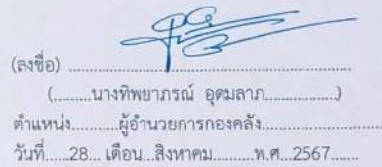 (ลงชื่อ) ..........................................................
(.........นางทิพยาภรณ์ อุดมลาภ.................)
ตำแหน่ง..........ผู้อำนวยการกองคลัง....................
วันที่......28... เดือน...สิงหาคม.........พ.ศ...2567.......